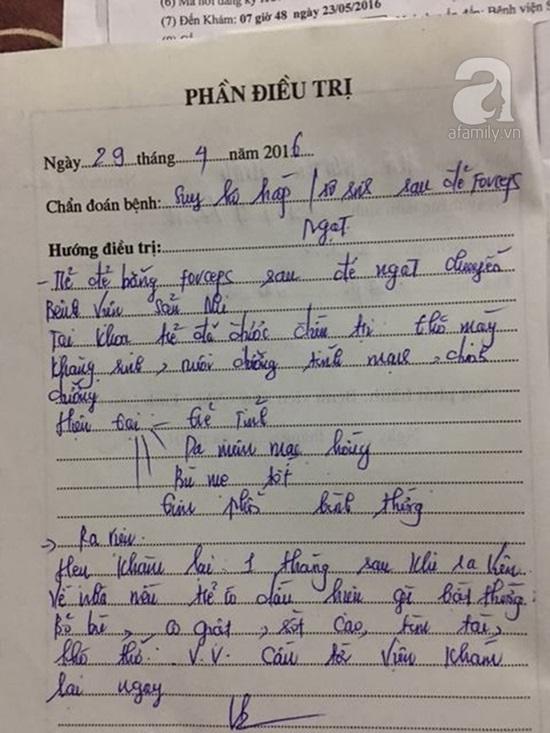 (7) Đến Khám: 07 giờ 48 ngày 23/05/2016
Bệnh viện
afamily.vn
PHẦN ĐIỀU TRỊ
Ngày 29 tháng 4 năm 2016
Chẩn đoán bệnh: Suy hô hấp / sơ sinh sau đẻ Forceps
Ngạt
Hướng điều trị:
- Trẻ đẻ bằng forceps sau đẻ ngạt chuyển
Bệnh viện sản Nhi
Tại khoa trẻ đã được điều trị thở máy
kháng sinh, nuôi dưỡng tĩnh mạch, dinh
dưỡng
Hiện tại - Trẻ tỉnh
Da niêm mạc hồng
Bú mẹ tốt
tim phổi bình thường
-> Ra viện
Hẹn khám lại 1 tháng sau khi ra viện
Về nhà nếu trẻ có dấu hiệu gì bất thường
Bỏ bú, co giật, sốt cao, tím tái,
khó thở v.v. cần tới viện khám
lại ngay